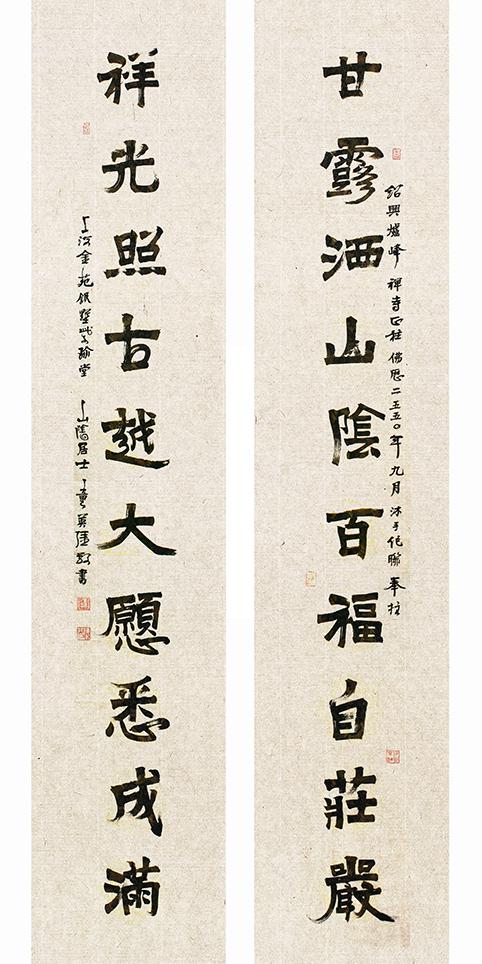 甘露洒山陰百福自莊嚴
紹興爐峰禪寺正柱 佛曆二五五〇年九月 沐手作聯奉柱
祥光照古越大願悉成滿
上海金苑銀墅 堂 山陰居士童 書